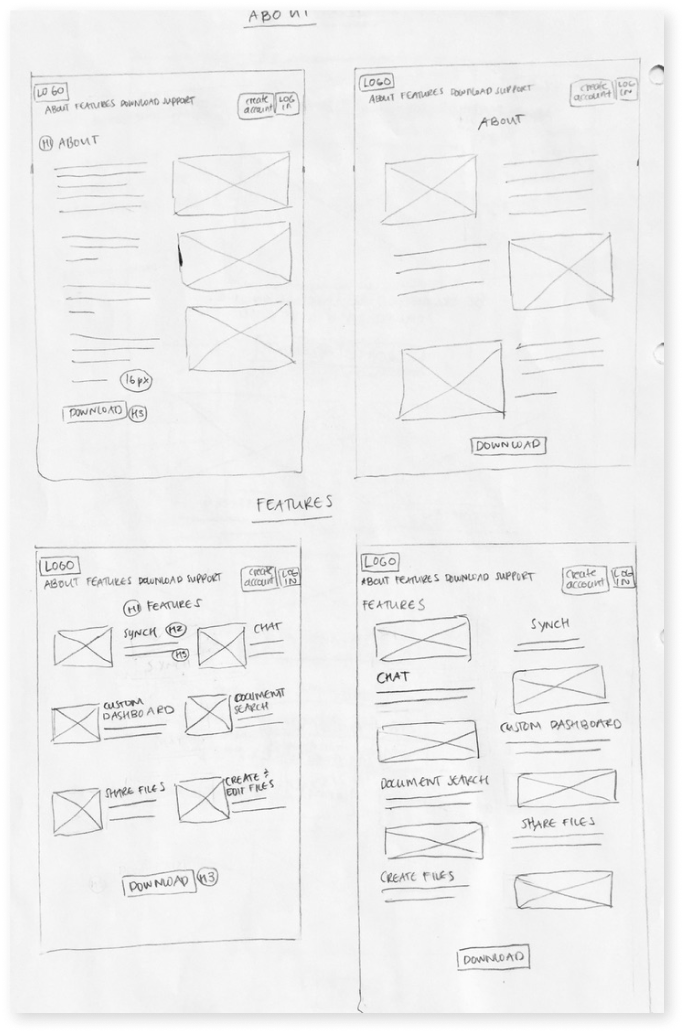 ABOUT
LOGO
ABOUT FEATURES DOWNLOAD SUPPORT
create account
LOG IN
H1 ABOUT
16px
DOWNLOAD H3
LOGO
ABOUT FEATURES DOWNLOAD SUPPORT
create account
LOG IN
ABOUT
DOWNLOAD
FEATURES
LOGO
ABOUT FEATURES DOWNLOAD SUPPORT
create account
LOG IN
H1 FEATURES
SYNCH H2
H3
CHAT
CUSTOM
DASHBOARD
DOCUMENT
SEARCH
SHARE FILES
CREATE &
EDIT FILES
DOWNLOAD H3
LOGO
ABOUT FEATURES DOWNLOAD SUPPORT
create account
LOG IN
FEATURES
SYNCH
CHAT
CUSTOM DASHBOARD
DOCUMENT SEARCH
SHARE FILES
CREATE FILES
DOWNLOAD